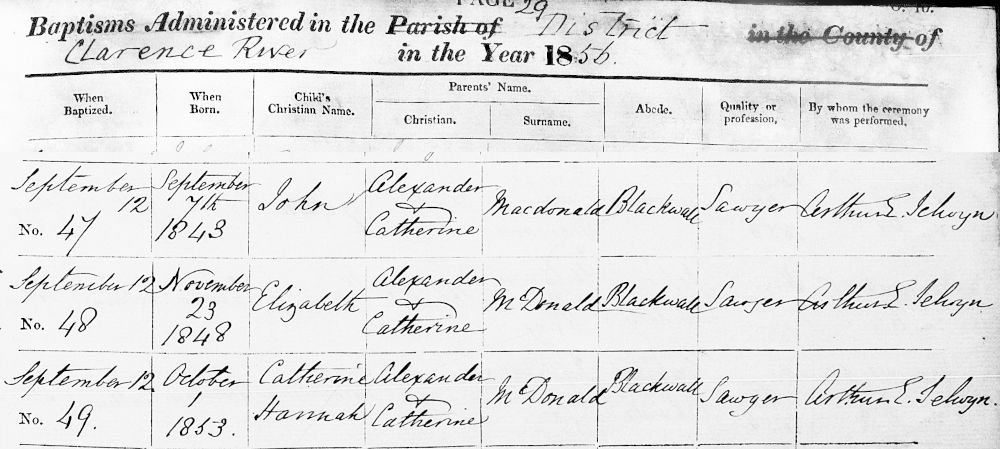 PAGE 29
Baptisms Administered in the Parish of District in the County of
Clarence River in the Year 1856.
When Baptized. When Born. Child's Christian Name. Parents' Name. Christian. Surname. Abode. Quality or profession, By whom the ceremony was performed,
September 12 September 7th 1843 John Alexander & Catherine Macdonald Blackwall Sawyer Arthur E. Selwyn
No. 47
September 12 November 23 1848 Elizabeth Alexander & Catherine McDonald Blackwall Sawyer Arthur E. Selwyn
No. 48
September 12 October 1 1853. Catherine Hannah Alexander & Catherine McDonald Blackwall Sawyer Arthur E. Selwyn.
No. 49.